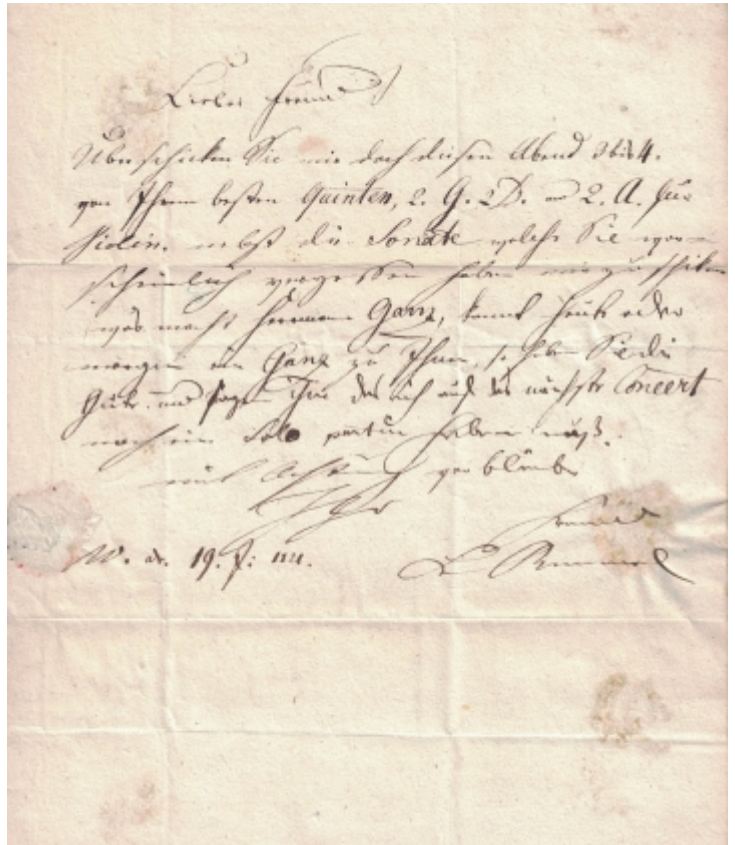 Lieber Freund
Überschicken Sie mir doch diesen Abend 3 bis 4.
von Ihren besten Quinten, 2. G. 2 D. und 2. A. für
Violin. nebst die Sonate welche Sie war-
scheinlich vergessen haben mir zu schicken
was macht Ganz, kommt heute oder
morgen ein Ganz zu Ihnen, so haben Sie die
Güte und sagen ihm das ich auf das nächste Concert
noch ein Solo haben muß.
mit Achtung verbleibe
Ihr
Freund
W. d. 19.